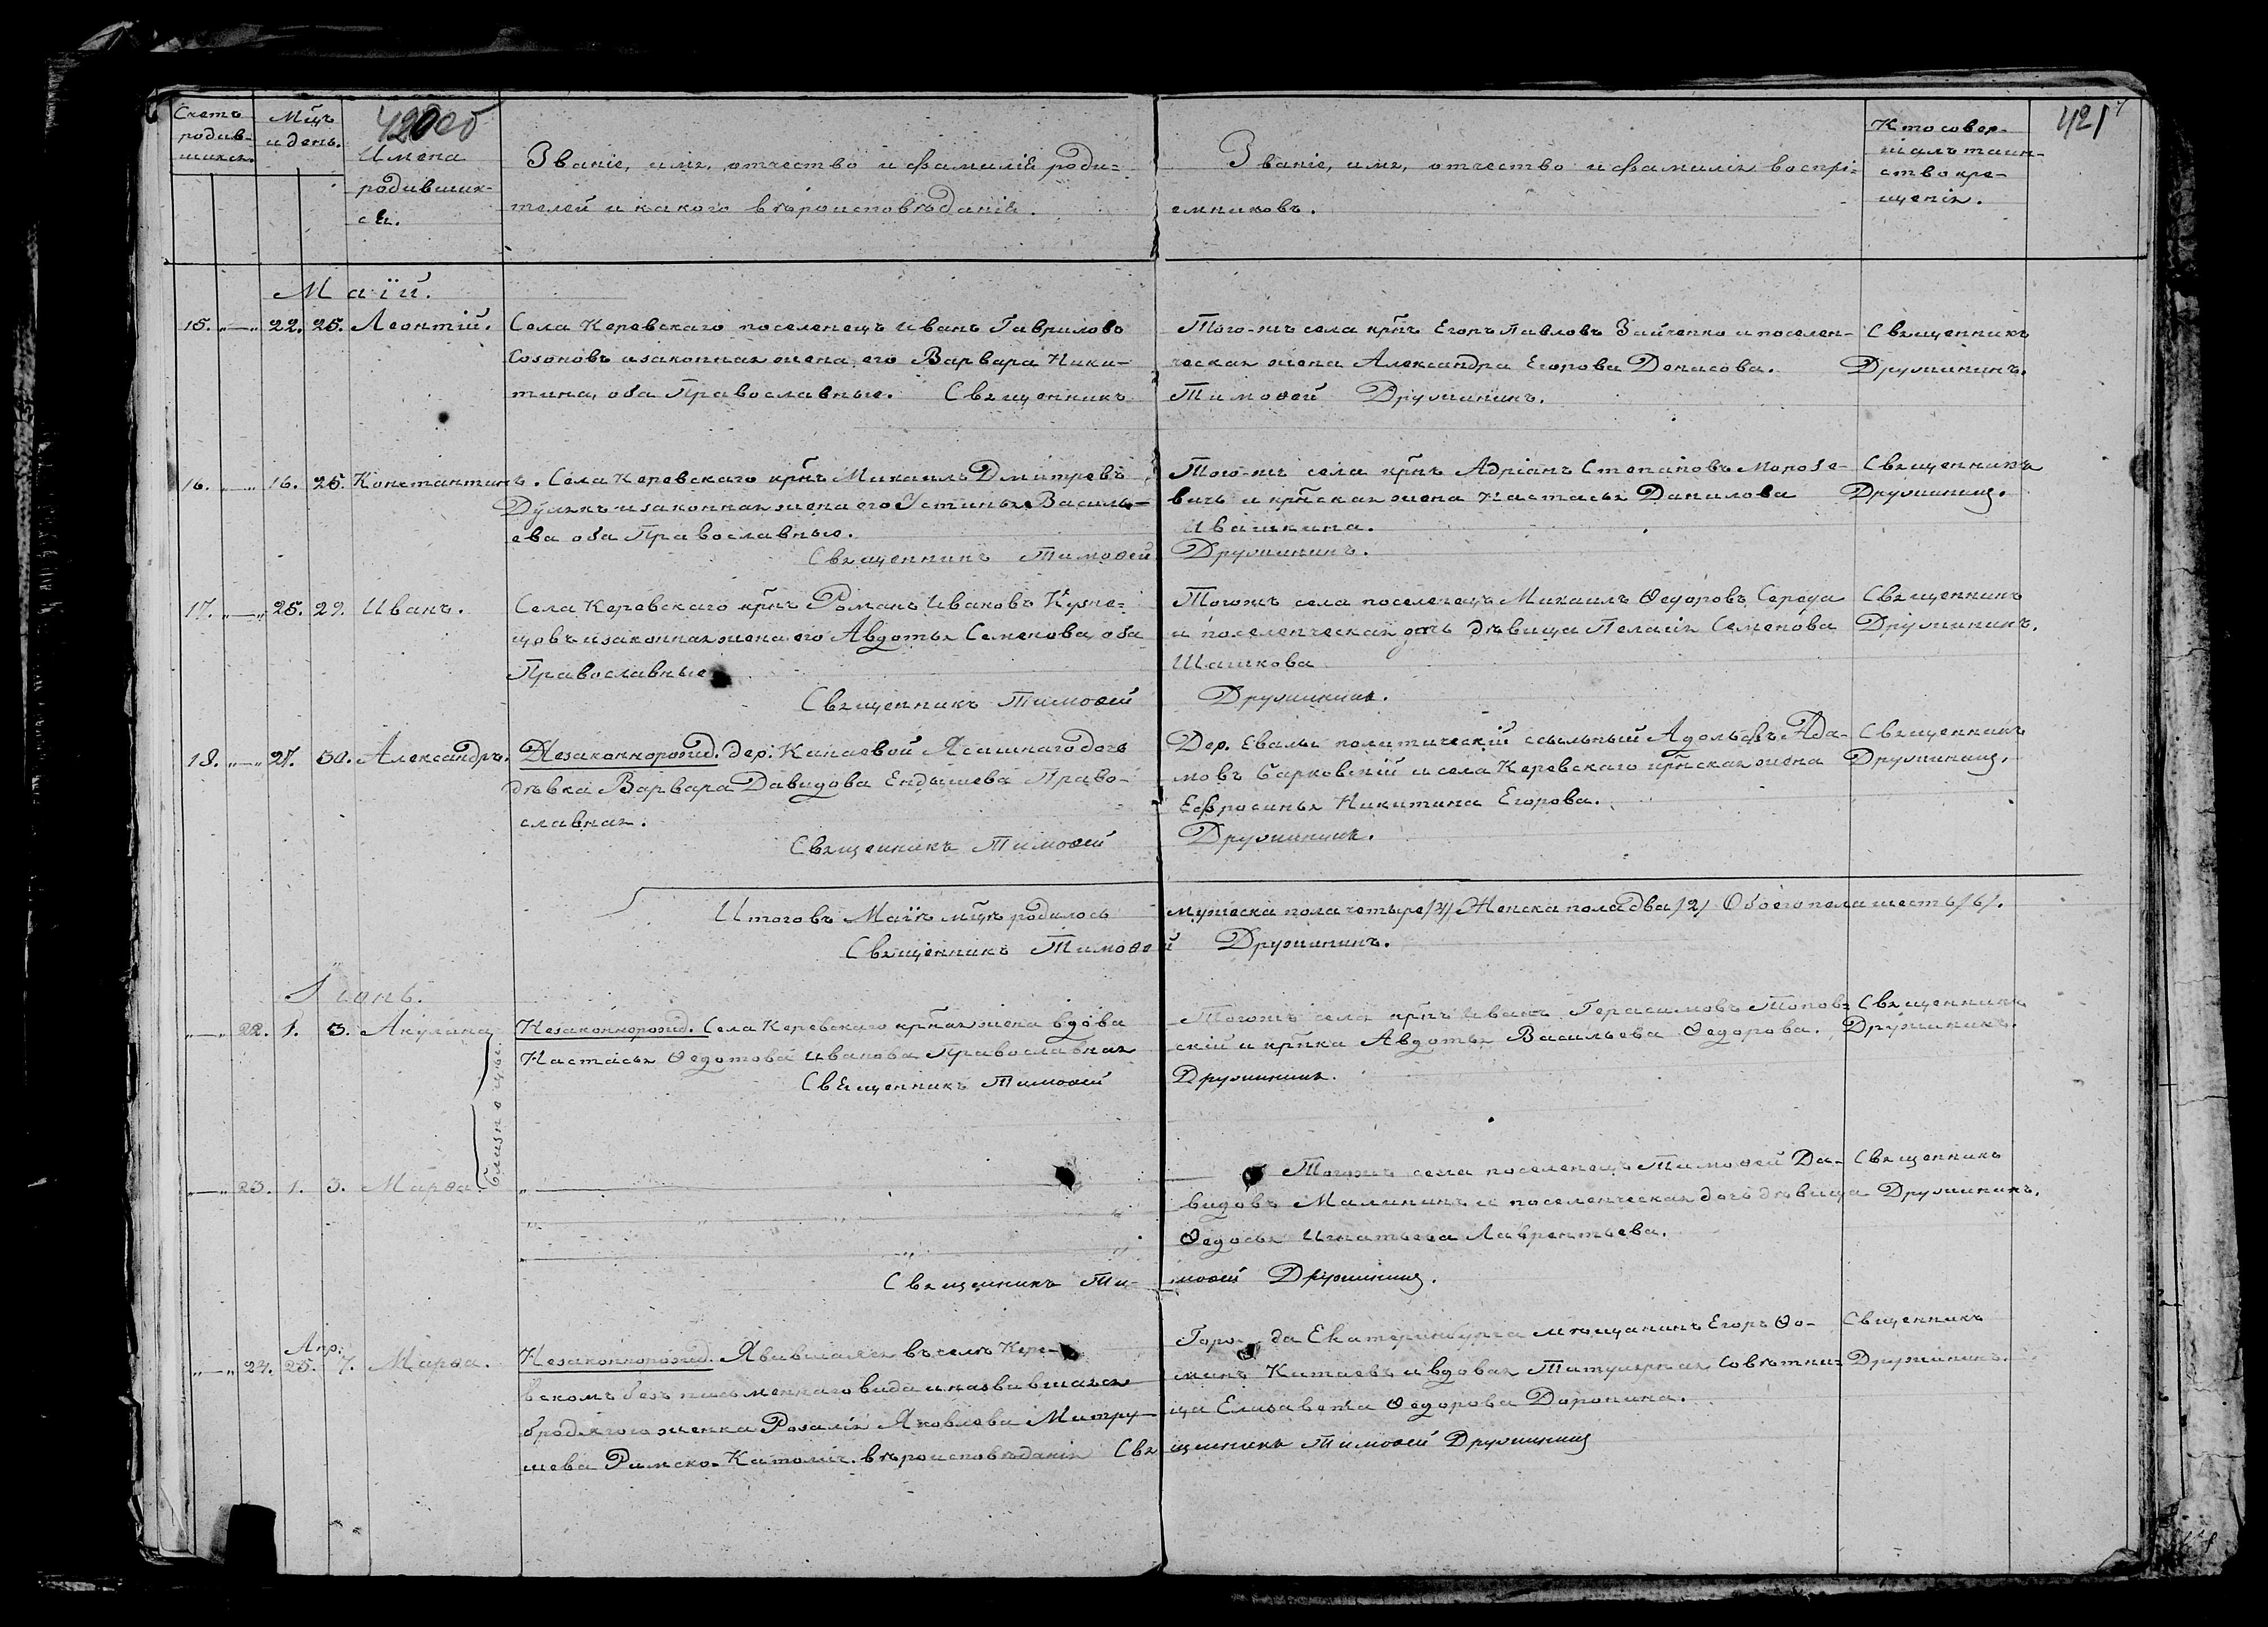 Счетъ родив-шихся.
Мц̃ъ и день.
420 об
Имена родивших-ся.
Званіе, имя, отчество и фамилія роди=
телей и какого вѣроисповѣданія.
Званіе, имя, отчество и фамилія воспрі=
емниковъ.
Кто совер-
шалъ таин-
ство кре-
щенія.
421
Маій.
15. „—„ 22. 25. Леонтій.
Села Керевскаго поселенецъ Иванъ Гавриловъ
Созоновъ и законная жена его Варвара Ники-
тина, оба Православные. Священникъ
Того-жъ села крн̃ъ Егоръ Павловъ Зайченко и поселен-
ческая жена Александра Егорова Денисова.
Тимоѳей Дружининъ.
Священникъ
Дружининъ.
16. „—„ 16. 26. Константинъ.
Села Керевскаго крн̃ъ Михаилъ Дмитревъ
Дулякъ и законная жена его Устинья Василь-
ева оба Православные.
Священникъ Тимоѳей
Того-жъ села крн̃ъ Адріанъ Степановъ Морозе-
вичъ и крн̃ская жена Настасья Данилова
Ивашкина.
Дружининъ.
Священникъ
Дружининъ.
17. „—„ 25. 29. Иванъ.
Села Керевскаго крн̃ъ Романъ Ивановъ Кузне=
цовъ и законная жена его Авдотья Семенова оба
Православные
Священникъ Тимоѳей
Тогожъ села поселенецъ Михаилъ Ѳедоровъ Середа
и поселенческая дочь дѣвица Пелагія Семенова
Шашкова
Дружининъ.
Священникъ
Дружининъ.
18. „—„ 27. 30. Александръ.
Незаконнорожд. дер. Канаевой Ясашнаго дочь
дѣвка Варвара Давидова Ендышева Право-
славная.
Священникъ Тимоѳей
Дер. Евальг политическій ссыльный Адольфъ Ада-
мовъ Барковскій и села Керевскаго крн̃ская жена
Ефросинья Никитина Егорова.
Дружининъ.
Священникъ
Дружининъ.
Итого въ Маіѣ мц̃ѣ родилось мужеска пола четыре /4/ Женска пола два /2/ Обоего пола шесть /6/.
Священникъ Тимоѳей Дружининъ.
Іюнь.
„—„ 22. 1. 3. Акулина
Близнецы.
Незаконнорожд. Села Керевскаго крн̃ская жена вдова
Настасья Ѳедотова Иванова Православная
Священникъ Тимоѳей
Тогожъ села крн̃ъ Иванъ Герасимовъ Топов=
скій и крн̃ка Авдотья Васильева Ѳедорова.
Дружининъ.
Священникъ
Дружининъ.
„—„ 23. 1. 3. Марѳа.
Священникъ Ти-
Тогожъ села поселенецъ Тимоѳей Да-
видовъ Малининъ и поселенческая дочь дѣвица
Ѳедосья Игнатьева Лаврентьева.
моѳей Дружининъ.
Священникъ
Дружининъ.
Апр.
„—„ 24. 25. 7. Марѳа.
Незаконнорожд. Явившаяся въ селѣ Кере-
вскомъ безъ письменнаго вида и назвавшаяся
бродягою женка Розалія Яковлева Матру-
шева Римско-Католич. вѣроисповѣданія Свя
Горо-да Екатеринбурга мѣщанинъ Егоръ Ѳо-
минъ Китаевъ и вдовая Титулярная Совѣтни=
ца Елисавета Ѳедорова Доронина.
щенникъ Тимоѳей Дружининъ
Священникъ
Дружининъ.